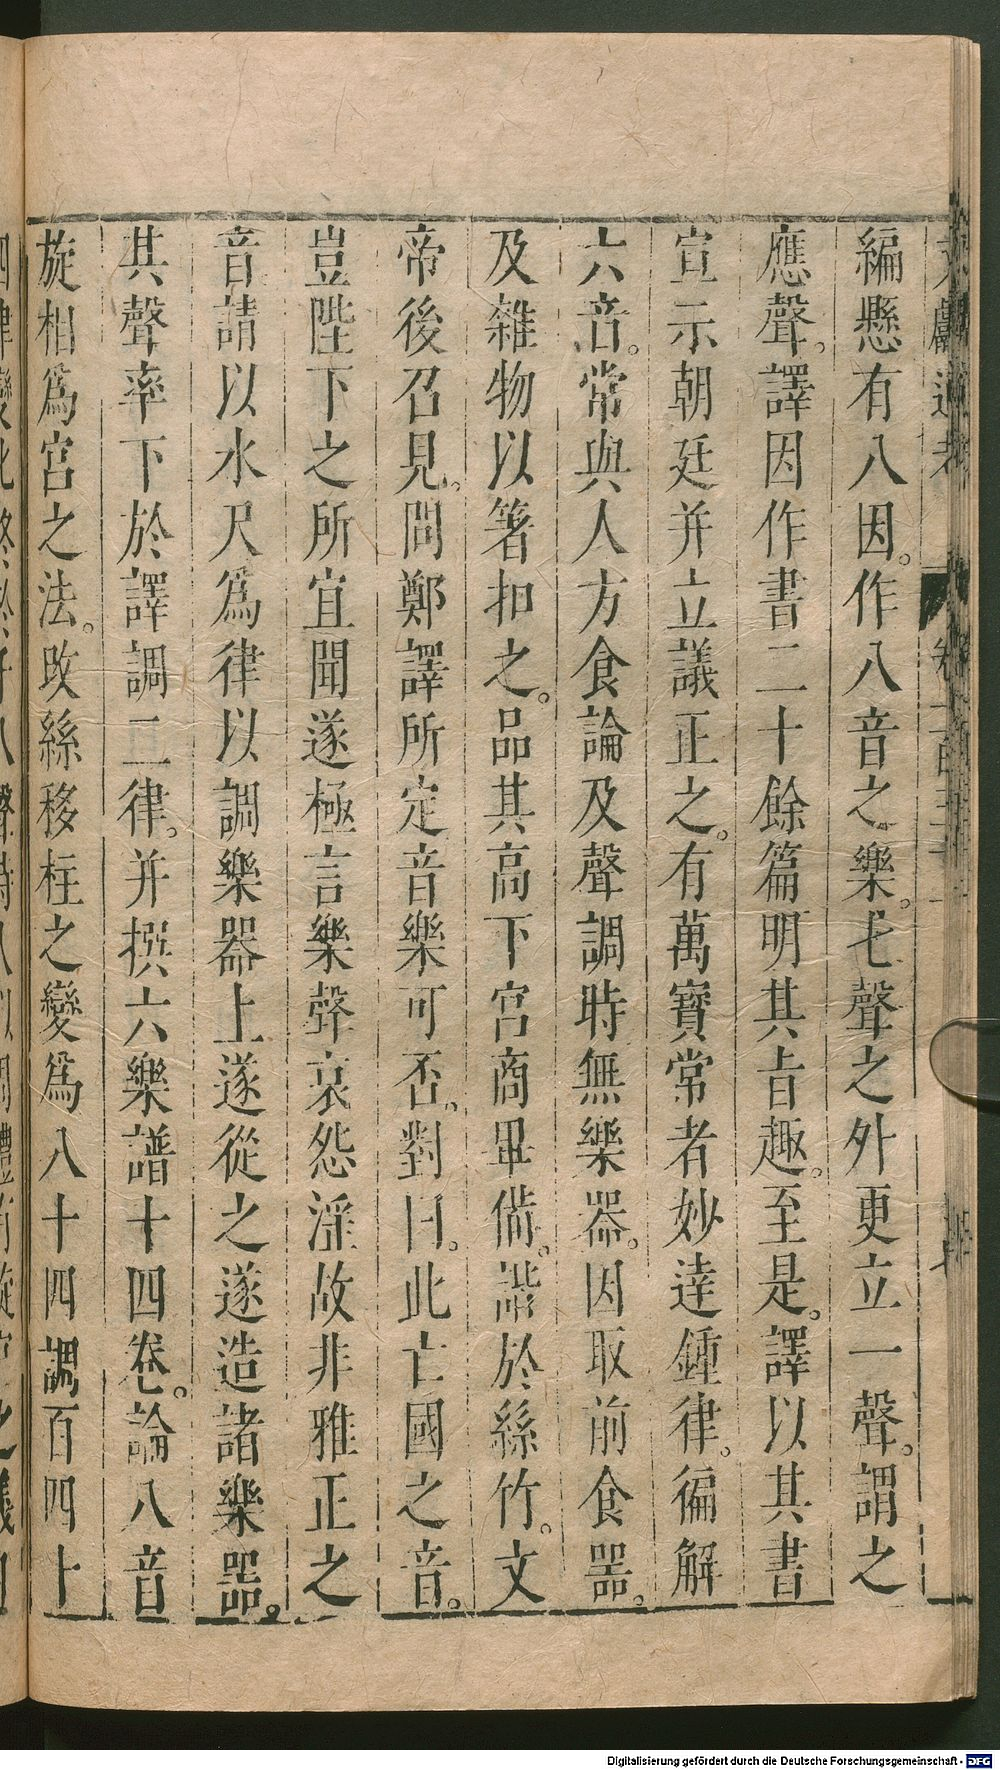 文獻通考 卷一百三十一
編懸有八因。作八音之樂。七聲之外更立一聲。謂之
應聲。譯因作書二十餘篇明其旨趣。至是。譯以其書
宣示朝廷并立議正之。有萬寶常者妙達鍾律。徧解
六音。常與人方食論及聲調時無樂器。因取前食器。
及雜物以箸扣之。品其高下宮商畢備。諧於絲竹。文
帝後召見。問鄭譯所定音樂可否。對曰。此亡國之音。
豈陛下之所宜聞遂極言樂聲哀怨淫故非雅正之
音請以水尺爲律以調樂器上遂從之遂造諸樂器。
其聲率下於譯調二律。并撰六樂譜十四卷。論八音
旋相爲宮之法。改絲移柱之變爲八十四調百四十
Digitalisierung gefördert durch die Deutsche Forschungsgemeinschaft - DFG